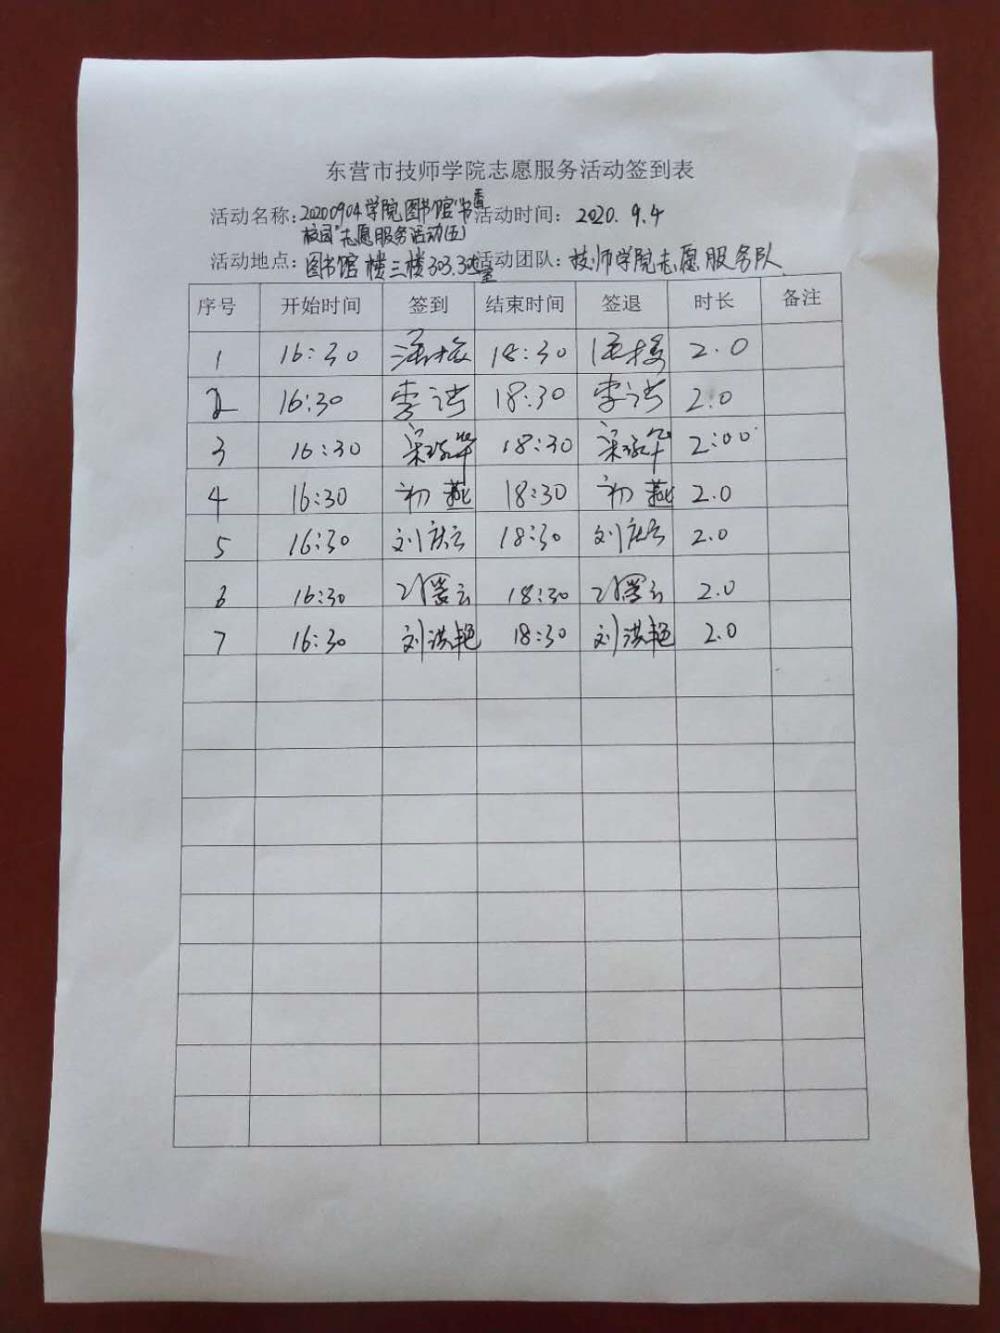 东营市技师学院志愿服务活动签到表
活动名称：20200904学院图书馆“书香 活动时间：2020.9.4
校园”志愿服务活动(五)
活动地点：图书馆楼三楼303.3 室 活动团队：技师学院志愿服务队
序号 开始时间 签到 结束时间 签退 时长 备注
1 16:30 18:30 2.0
2 16:30 李 18:30 李 2.0
3 16:30 梁 华 18:30 梁 华 2:00
4 16:30 初燕 18:30 初燕 2.0
5 16:30 刘庆云 18:30 刘庆云 2.0
6 16:30 云 18:30 云 2.0
7 16:30 刘洪艳 18:30 刘洪艳 2.0